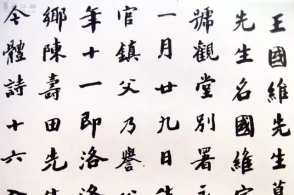 王國維先生
先生名國維字
號觀堂別署永
一月廿九日生
官鎮父乃譽
年十一即洛
鄉陳壽田先
今體詩十六